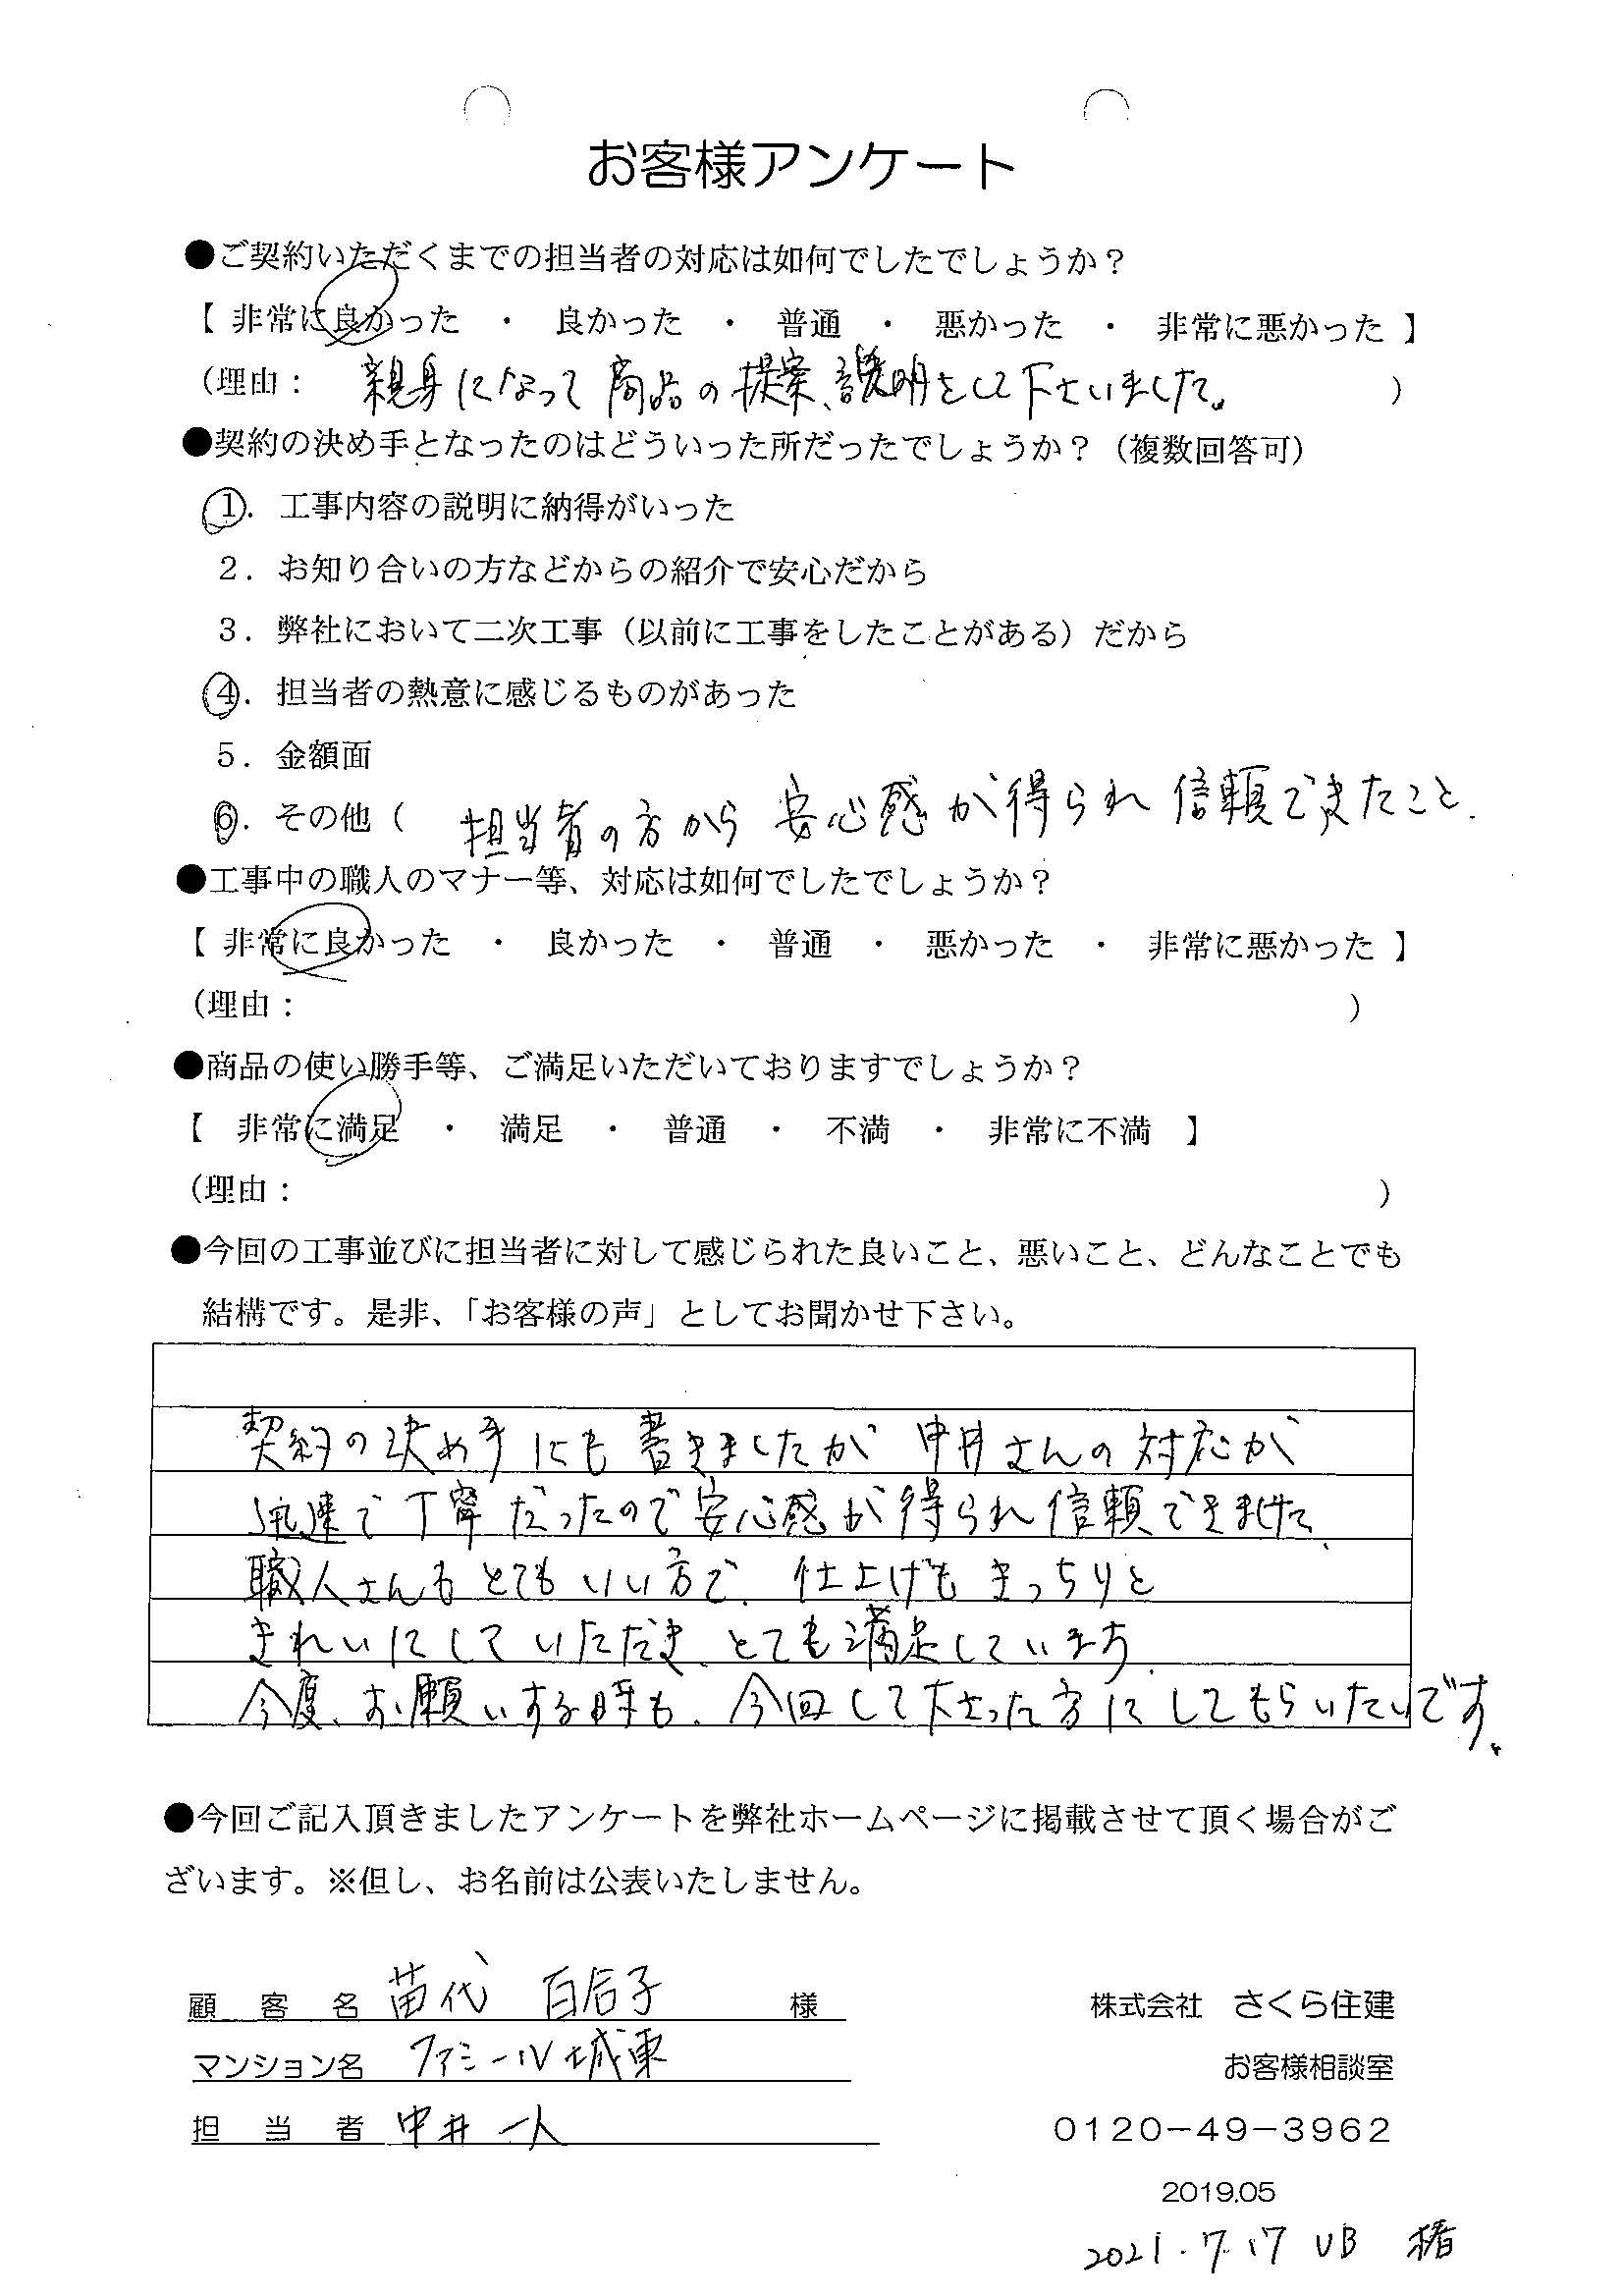 お客様アンケート
●ご契約いただくまでの担当者の対応は如何でしたでしょうか？
【 非常に良かった ・ 良かった ・ 普通 ・ 悪かった ・ 非常に悪かった 】
（理由： 親身になって商品の提案、説明をして下さいました。 ）
●契約の決め手となったのはどういった所だったでしょうか？（複数回答可）
１．工事内容の説明に納得がいった
２．お知り合いの方などからの紹介で安心だから
３．弊社において二次工事（以前に工事をしたことがある）だから
４．担当者の熱意に感じるものがあった
５．金額面
６．その他（ 担当者の方から安心感が得られ信頼できたこと.
●工事中の職人のマナー等、対応は如何でしたでしょうか？
【 非常に良かった ・ 良かった ・ 普通 ・ 悪かった ・ 非常に悪かった 】
（理由： ）
●商品の使い勝手等、ご満足いただいておりますでしょうか？
【 非常に満足 ・ 満足 ・ 普通 ・ 不満 ・ 非常に不満 】
（理由： ）
●今回の工事並びに担当者に対して感じられた良いこと、悪いこと、どんなことでも
結構です。是非、「お客様の声」としてお聞かせ下さい。
契約の決め手にも書きましたが 中井さんの対応が
迅速で丁寧だったので安心感が得られ信頼できました、
職人さんもとてもいい方で、仕上げもきっちりと
きれいにしていただき、とても満足しています.
今度、お願いする時も、今回して下さった方にしてもらいたいです。
●今回ご記入頂きましたアンケートを弊社ホームページに掲載させて頂く場合がご
ざいます。※但し、お名前は公表いたしません。
顧客名 苗代 百合子 様
株式会社 さくら住建
マンション名 ファミール城東
お客様相談室
担当者 中井 一人
0120-49-3962
2019.05
2021.7.17 UB 椿